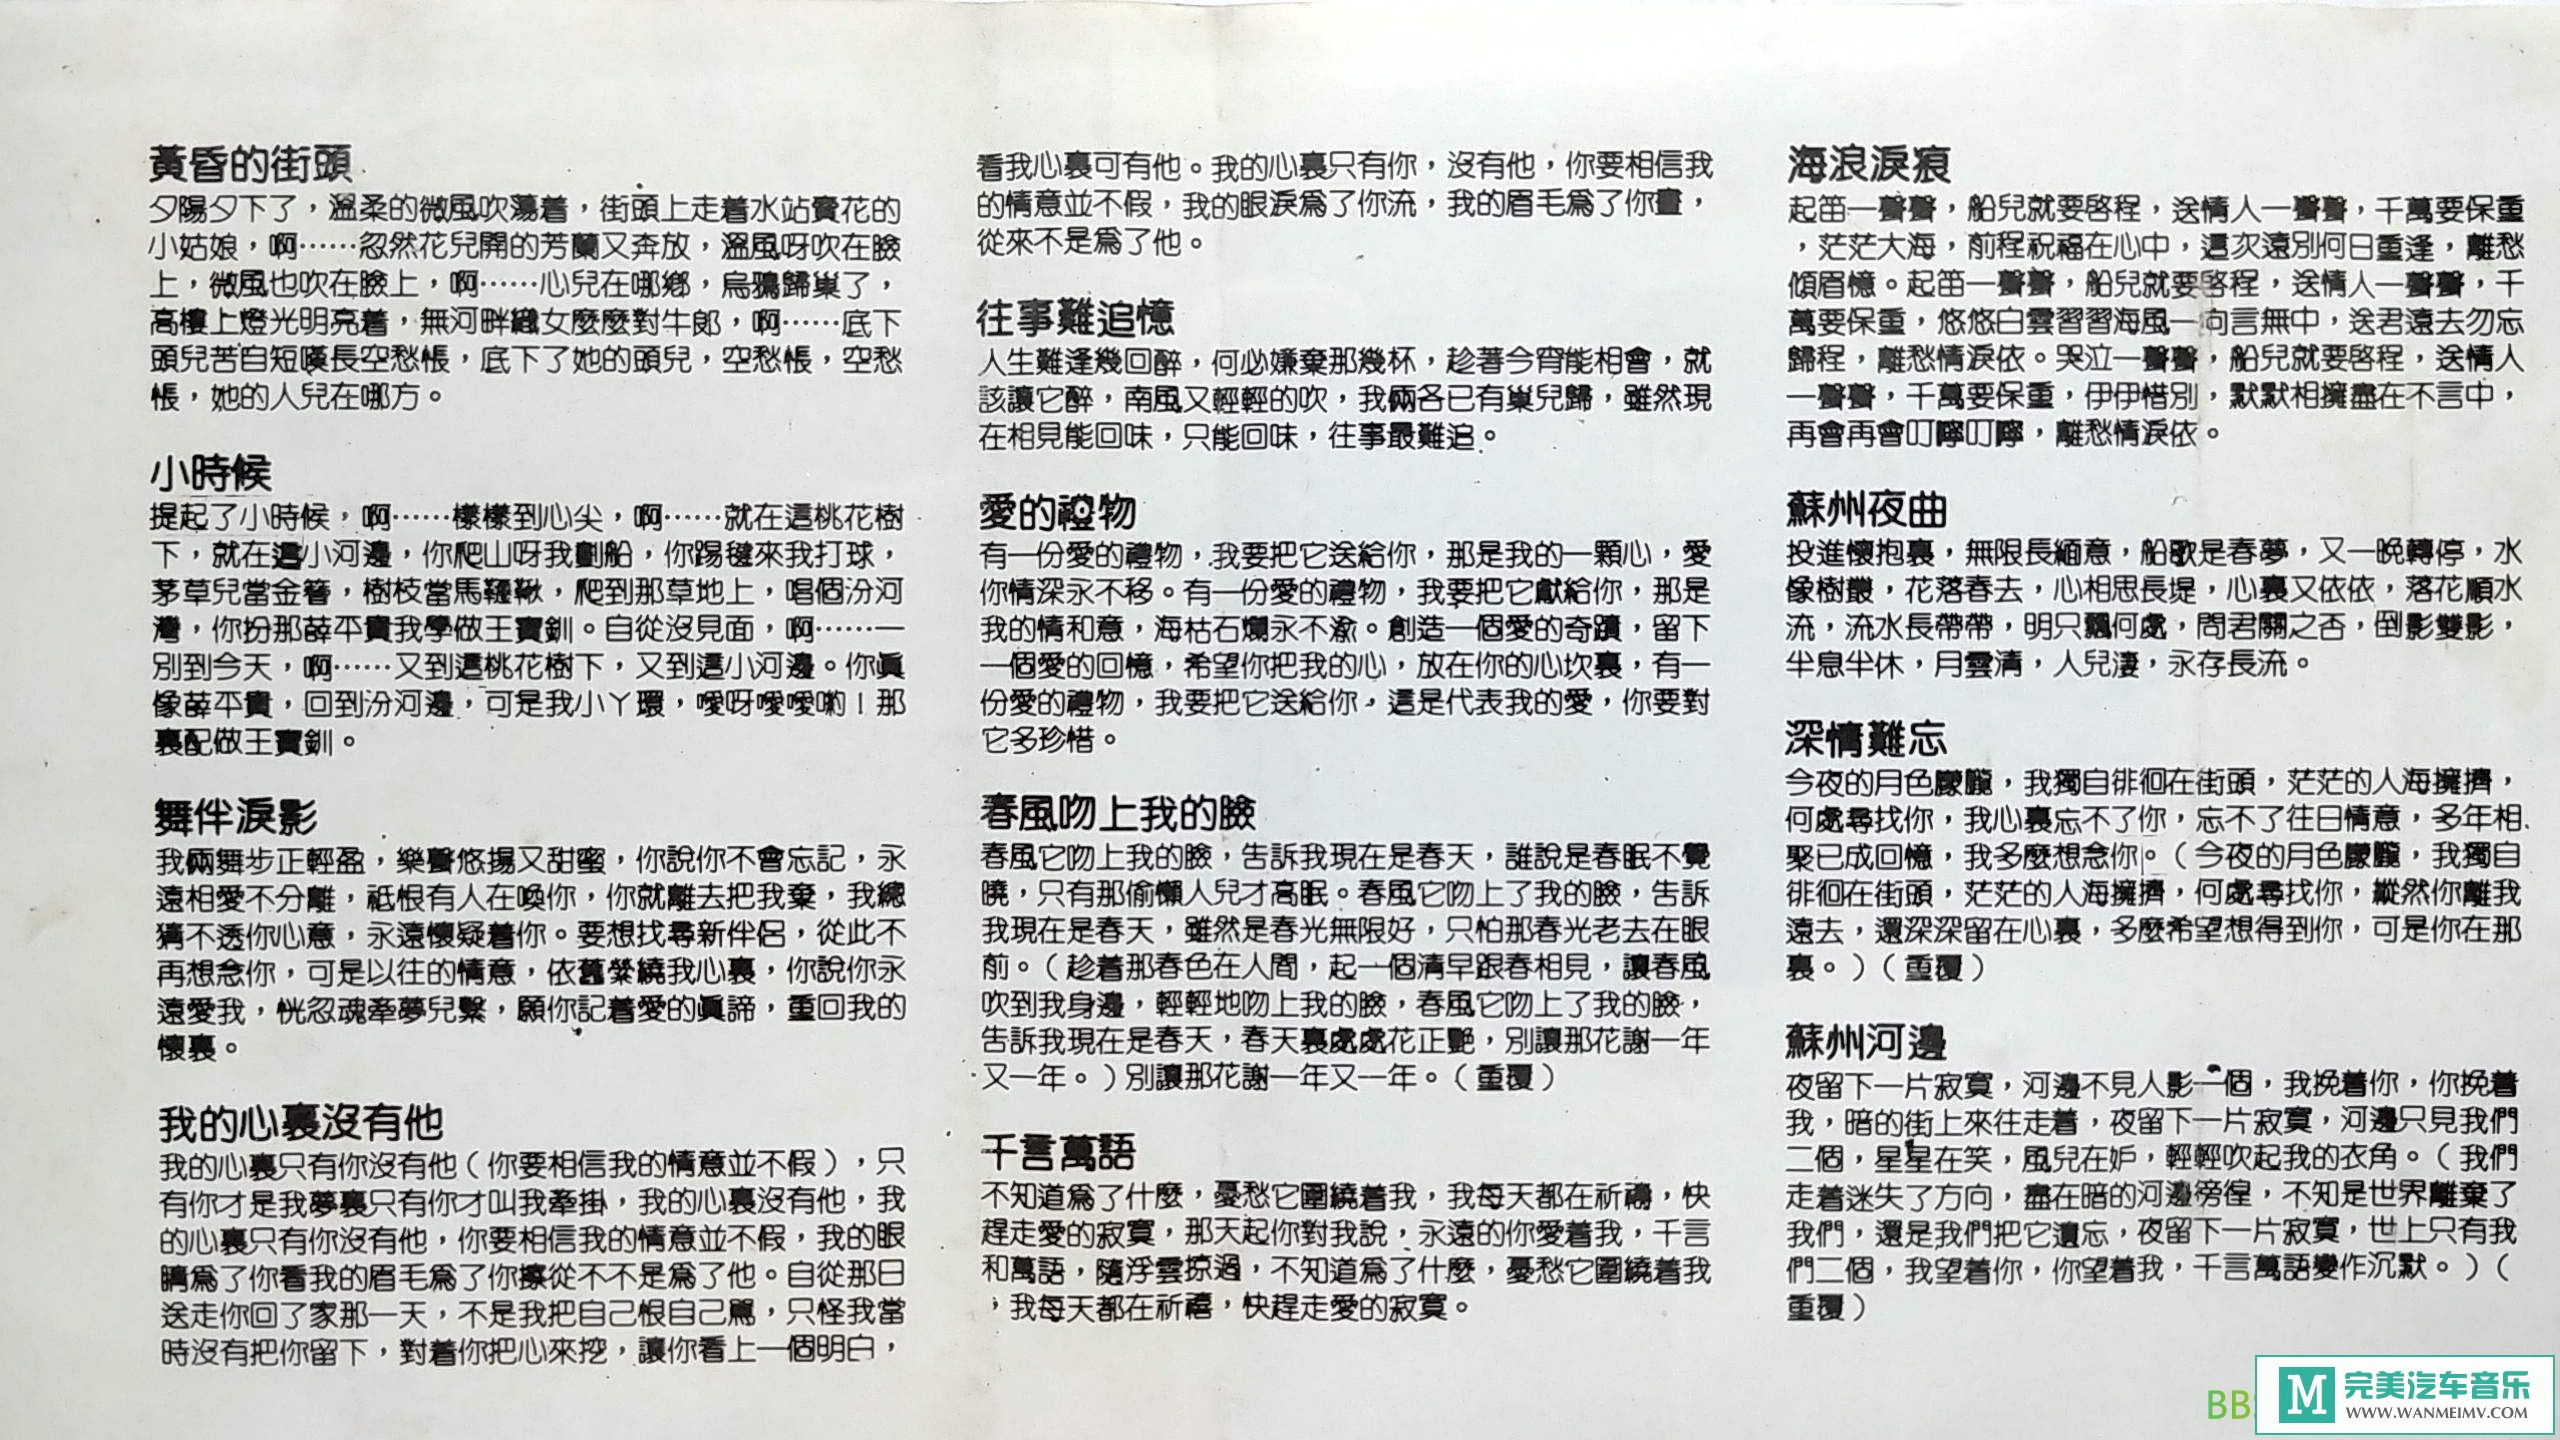 黃昏的街頭
夕陽夕下了，溫柔的微風吹蕩着，街頭上走着水站賣花的
小姑娘，啊⋯⋯忽然花兒開的芳蘭又奔放，溫風呀吹在臉
上，微風也吹在臉上，啊⋯⋯心兒在哪鄉，烏鴉歸巢了，
高樓上燈光明亮着，無河畔織女麼麼對牛郎，啊⋯⋯底下
頭兒苦自短嘆長空愁悵，底下了她的頭兒，空愁悵，空愁
悵，她的人兒在哪方。
小時候
提起了小時候，啊⋯⋯樣樣到心尖，啊⋯⋯就在這桃花樹
下，就在這小河邊，你爬山呀我劃船，你踢毽來我打球，
茅草兒當金簪，樹枝當馬韆鞦，爬到那草地上，唱個汾河
灣，你扮那薛平貴我學做王寶釧。自從沒見面，啊⋯⋯一
別到今天，啊⋯⋯又到這桃花樹下，又到這小河邊。你眞
像薛平貴，回到汾河邊，可是我小丫環，噯呀噯噯喲！那
裏配做王寶釧。
舞伴淚影
我倆舞步正輕盈，樂聲悠揚又甜蜜，你說你不會忘記，永
遠相愛不分離，祗恨有人在喚你，你就離去把我棄，我總
猜不透你心意，永遠懷疑着你。要想找尋新伴侶，從此不
再想念你，可是以往的情意，依舊縈繞我心裏，你說你永
遠愛我，恍忽魂牽夢兒繫，願你記着愛的眞諦，重回我的
懷裏。
我的心裏沒有他
我的心裏只有你沒有他（你要相信我的情意並不假），只
有你才是我夢裏只有你才叫我牽掛，我的心裏沒有他，我
的心裏只有你沒有他，你要相信我的情意並不假，我的眼
睛爲了你看我的眉毛爲了你擦從不不是爲了他。自從那日
送走你回了家那一天，不是我把自己恨自己罵，只怪我當
時沒有把你留下，對着你把心來挖，讓你看上一個明白，
看我心裏可有他。我的心裏只有你，沒有他，你要相信我
的情意並不假，我的眼淚爲了你流，我的眉毛爲了你畫，
從來不是爲了他。
往事難追憶
人生難逢幾回醉，何必嫌棄那幾杯，趁著今宵能相會，就
該讓它醉，南風又輕輕的吹，我倆各已有巢兒歸，雖然現
在相見能回味，只能回味，往事最難追。
愛的禮物
有一份愛的禮物，我要把它送給你，那是我的一顆心，愛
你情深永不移。有一份愛的禮物，我要把它獻給你，那是
我的情和意，海枯石爛永不渝。創造一個愛的奇蹟，留下
一個愛的回憶，希望你把我的心，放在你的心坎裏，有一
份愛的禮物，我要把它送給你，這是代表我的愛，你要對
它多珍惜。
春風吻上我的臉
春風它吻上我的臉，告訴我現在是春天，誰說是春眠不覺
曉，只有那偷懶人兒才高眠。春風它吻上了我的臉，告訴
我現在是春天，雖然是春光無限好，只怕那春光老去在眼
前。（趁着那春色在人間，起一個清早跟春相見，讓春風
吹到我身邊，輕輕地吻上我的臉，春風它吻上了我的臉，
告訴我現在是春天，春天裏處處花正艷，別讓那花謝一年
又一年。）別讓那花謝一年又一年。（重覆）
千言萬語
不知道爲了什麼，憂愁它圍繞着我，我每天都在祈禱，快
趕走愛的寂寞，那天起你對我說，永遠的你愛着我，千言
和萬語，隨浮雲掠過，不知道爲了什麼，憂愁它圍繞着我
，我每天都在祈禧，快趕走愛的寂寞。
海浪淚痕
起笛一聲聲，船兒就要啓程，送情人一聲聲，千萬要保重
，茫茫大海，前程祝福在心中，這次遠別何日重逢，離愁
傾眉憶。起笛一聲聲，船兒就要啓程，送情人一聲聲，千
萬要保重，悠悠白雲習習海風一向言無中，送君遠去勿忘
歸程，離愁情淚依。哭泣一聲聲，船兒就要啓程，送情人
一聲聲，千萬要保重，伊伊惜別，默默相擁盡在不言中，
再會再會叮嚀叮嚀，離愁情淚依。
蘇州夜曲
投進懷抱裏，無限長緬意，船歌是春夢，又一晚轉停，水
像樹叢，花落春去，心相思長堤，心裏又依依，落花順水
流，流水長帶帶，明只飄何處，問君關之否，倒影雙影，
半息半休，月雲清，人兒淒，永存長流。
深情難忘
今夜的月色朦朧，我獨自徘徊在街頭，茫茫的人海擁擠，
何處尋找你，我心裏忘不了你，忘不了往日情意，多年相
聚已成回憶，我多麼想念你。（今夜的月色朦朧，我獨自
徘徊在街頭，茫茫的人海擁擠，何處尋找你，縱然你離我
遠去，還深深留在心裏，多麼希望想得到你，可是你在那
裏。）（重覆）
蘇州河邊
夜留下一片寂寞，河邊不見人影一個，我挽着你，你挽着
我，暗的街上來往走着，夜留下一片寂寞，河邊只見我們
二個，星星在笑，風兒在妒，輕輕吹起我的衣角。（我們
走着迷失了方向，盡在暗的河邊徬徨，不知是世界離棄了
我們，還是我們把它遺忘，夜留下一片寂寞，世上只有我
們二個，我望着你，你望着我，千言萬語變作沉默。）（
重覆）
BB
M 完美汽车音乐
WWW.WANMEIMV.COM